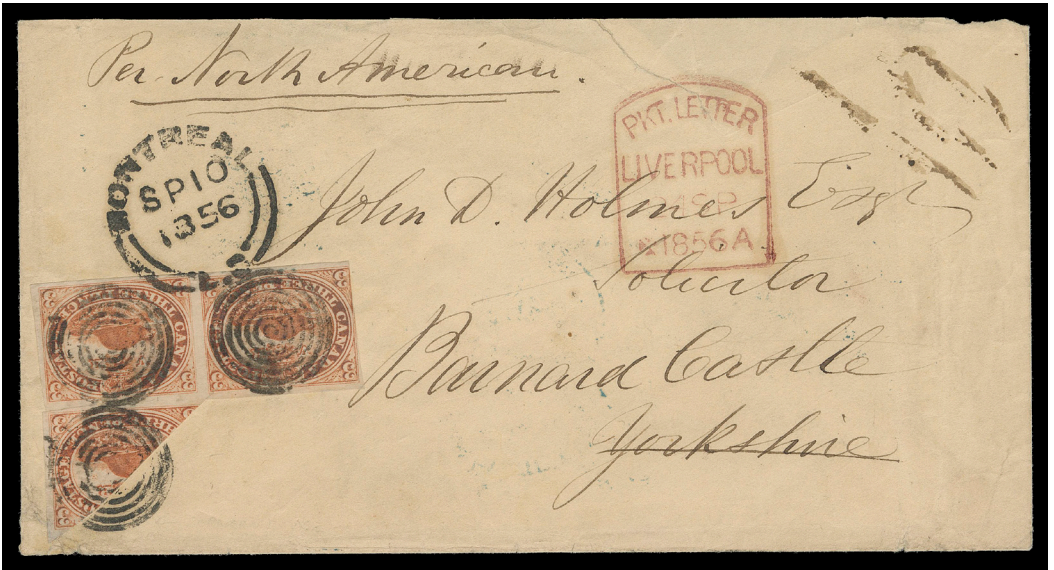 Per North American.
MONTREAL
SP 10
1856
L.C
PKT. LETTER
LIVERPOOL
SP
1856 A
John D. Holmes Esqr
Solicitor
Barnard Castle
Yorkshire
CANA
POSTAGE